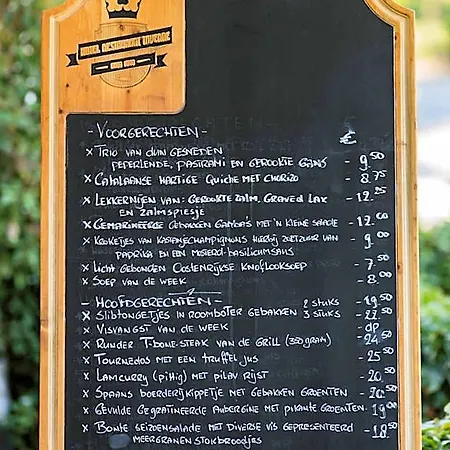 - VOORGERECHTEN - €
x TRIO VAN DUN GESNEDEN
PEPERLENDE, PASTRAMI EN GEROOKTE GANS - 9.50
x CATALAANSE HARTIGE QUICHE MET CHORIZO - 8.75
x LEKKERNIJEN VAN: GEROOKTE ZALM, GRAVED LAX - 12.25
EN ZALMSPIESJE
x GEMARINEERDE GEBAKKEN GAMBA'S MET 'N KLEINE SALADE - 12.00
x KROKETJES VAN KASTANJECHAMPIGNONS HIERBIJ ZOETZUUR VAN - 9.00
PAPRIKA EN EEN MOSTERD-BASILICUMSAUS
x LICHT GEBONDEN OOSTENRIJKSE KNOFLOOKSOEP - 7.50
x SOEP VAN DE WEEK - 8.00
- HOOFDGERECHTEN - 2 STUKS - 19.50
x SLIBTONGETJES IN ROOMBOTER GEBAKKEN 3 STUKS - 22.50
x VISVANGST VAN DE WEEK - DP
x RUNDER T-BONE-STEAK VAN DE GRILL (350 GRAM) - 24.50
x TOURNEDOS MET EEN TRUFFEL JUS - 25.50
x LAMCURRY (PITTIG) MET PILAV RIJST - 20.50
x SPAANS BOERDERIJKIPPETJE MET GEBAKKEN GROENTEN - 20.50
x GEVULDE GEGRATINEERDE AUBERGINE MET PIKANTE GROENTEN - 19.00
x BONTE SEIZOENSALADE MET DIVERSE VIS GEPRESENTEERD - 18.50
MEERGRANEN STOKBROODJES